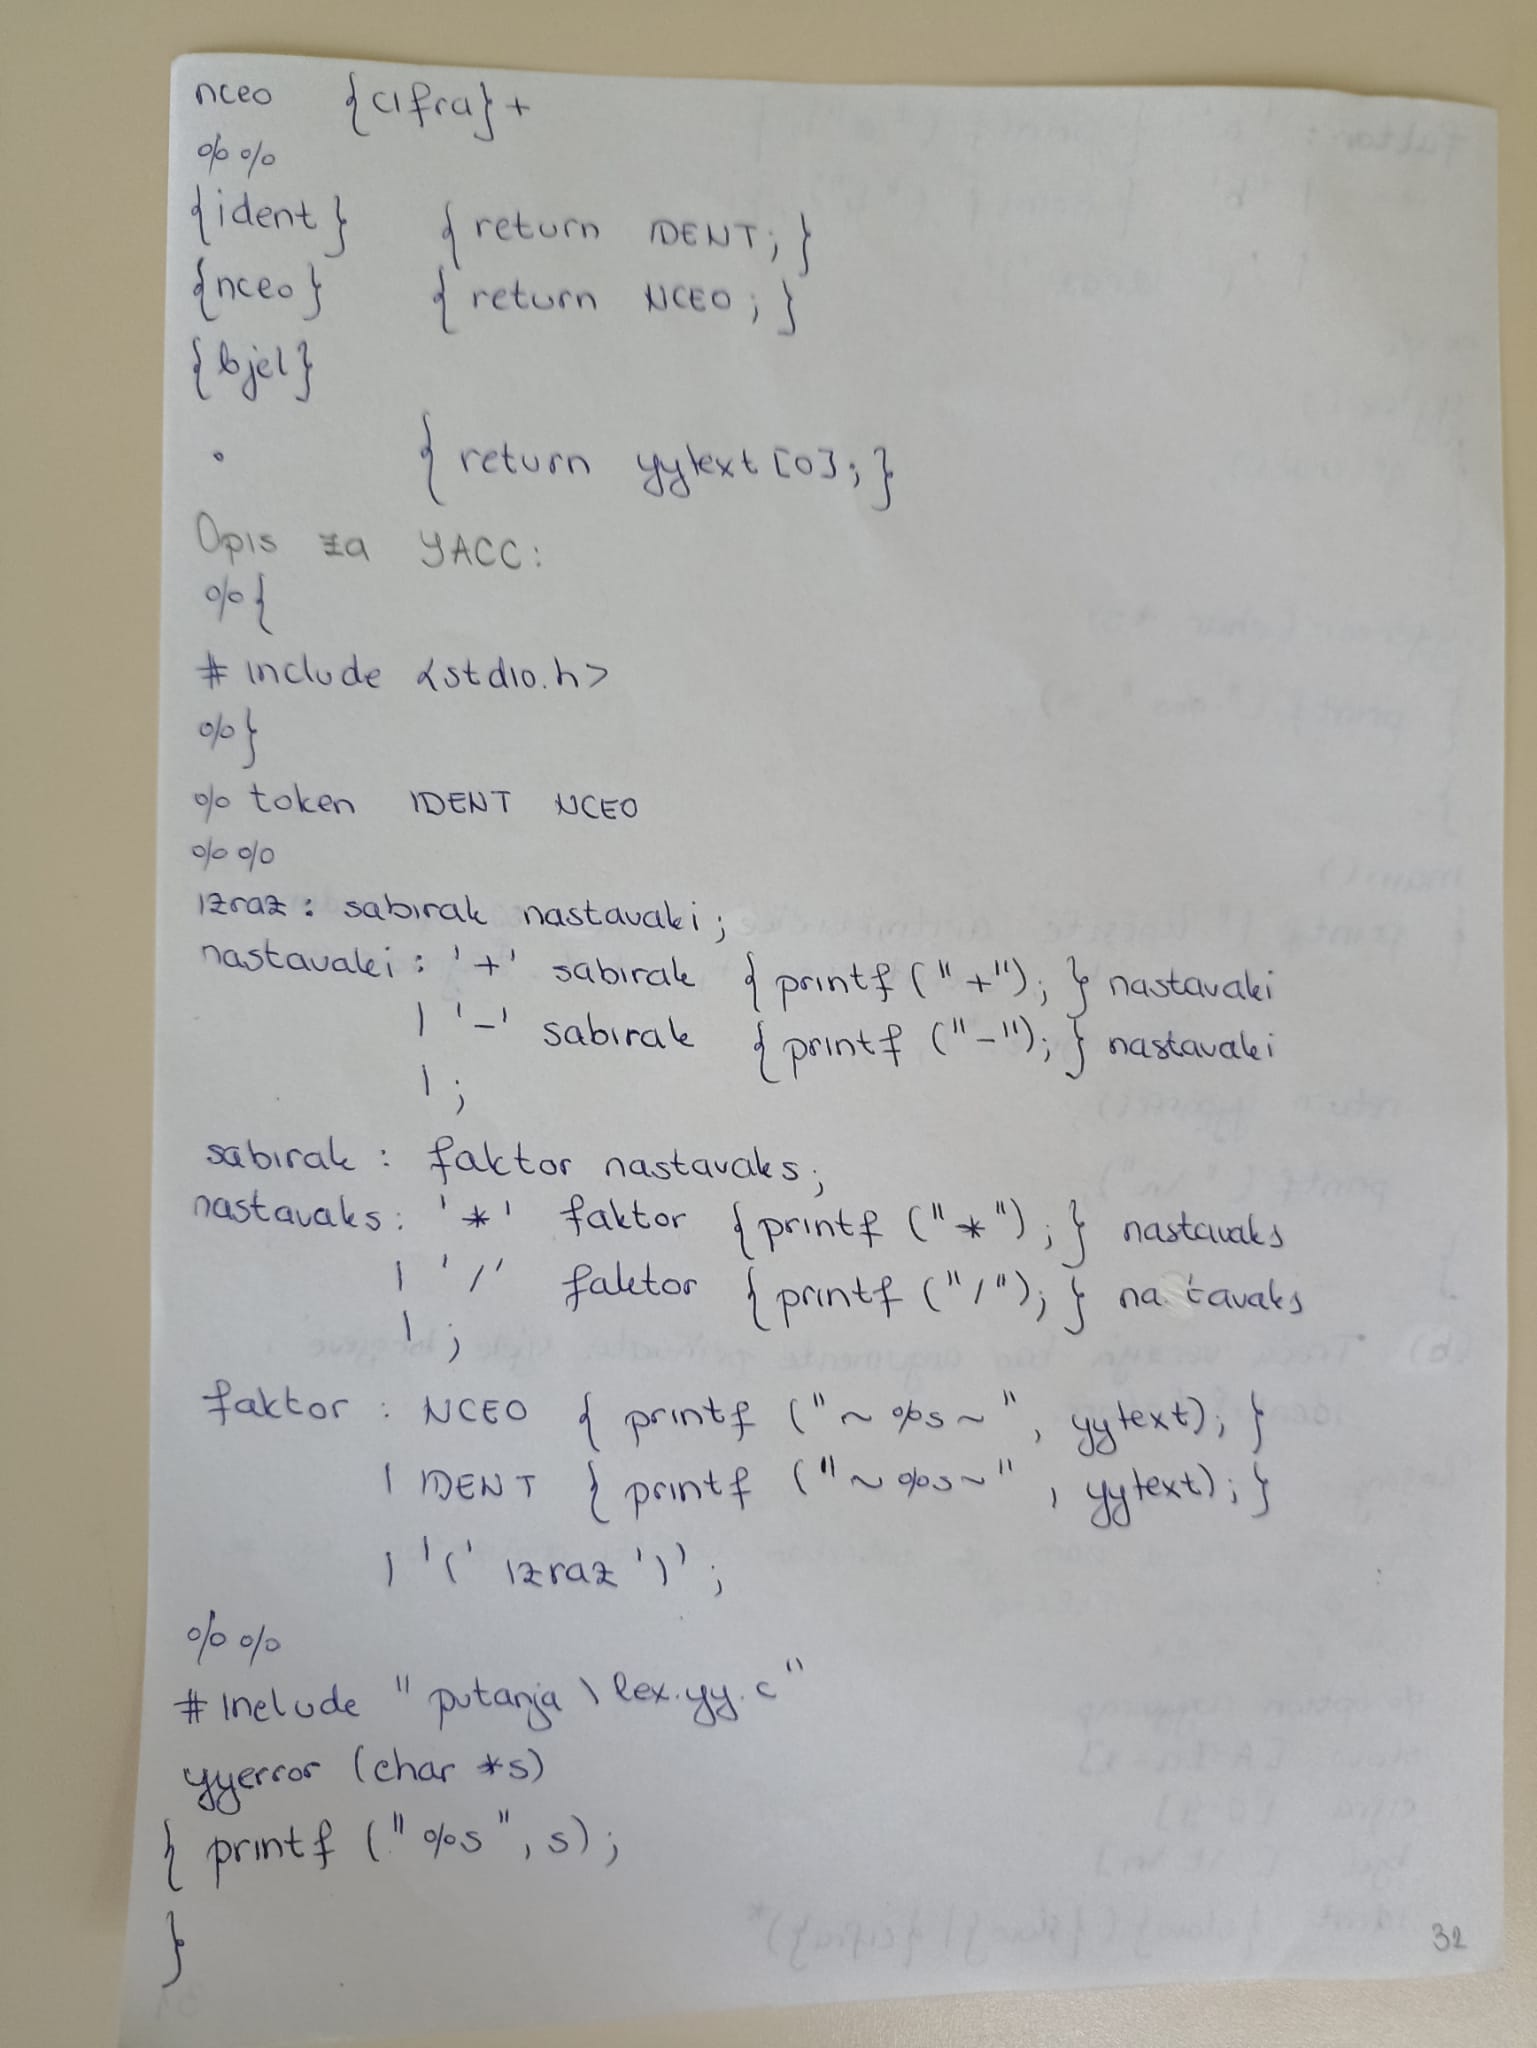 nceo {cifra}+
%%
{ident} {return IDENT;}
{nceo} {return NCEO;}
{bjel}
. {return yytext[0];}
Opis za YACC:
%{
#include <stdio.h>
%}
%token IDENT NCEO
%%
izraz: sabirak nastavaki;
nastavaki: '+' sabirak {printf("+");} nastavaki
| '-' sabirak {printf("-");} nastavaki
| ;
sabirak: faktor nastavaks;
nastavaks: '*' faktor {printf("*");} nastavaks
| '/' faktor {printf("/");} nastavaks
| ;
faktor: NCEO {printf("~%s~", yytext);}
| IDENT {printf("~%s~", yytext);}
| '(' izraz ')';
%%
#include "putanja\lex.yy.c"
yyerror (char *s)
{ printf("%s", s);
}
32